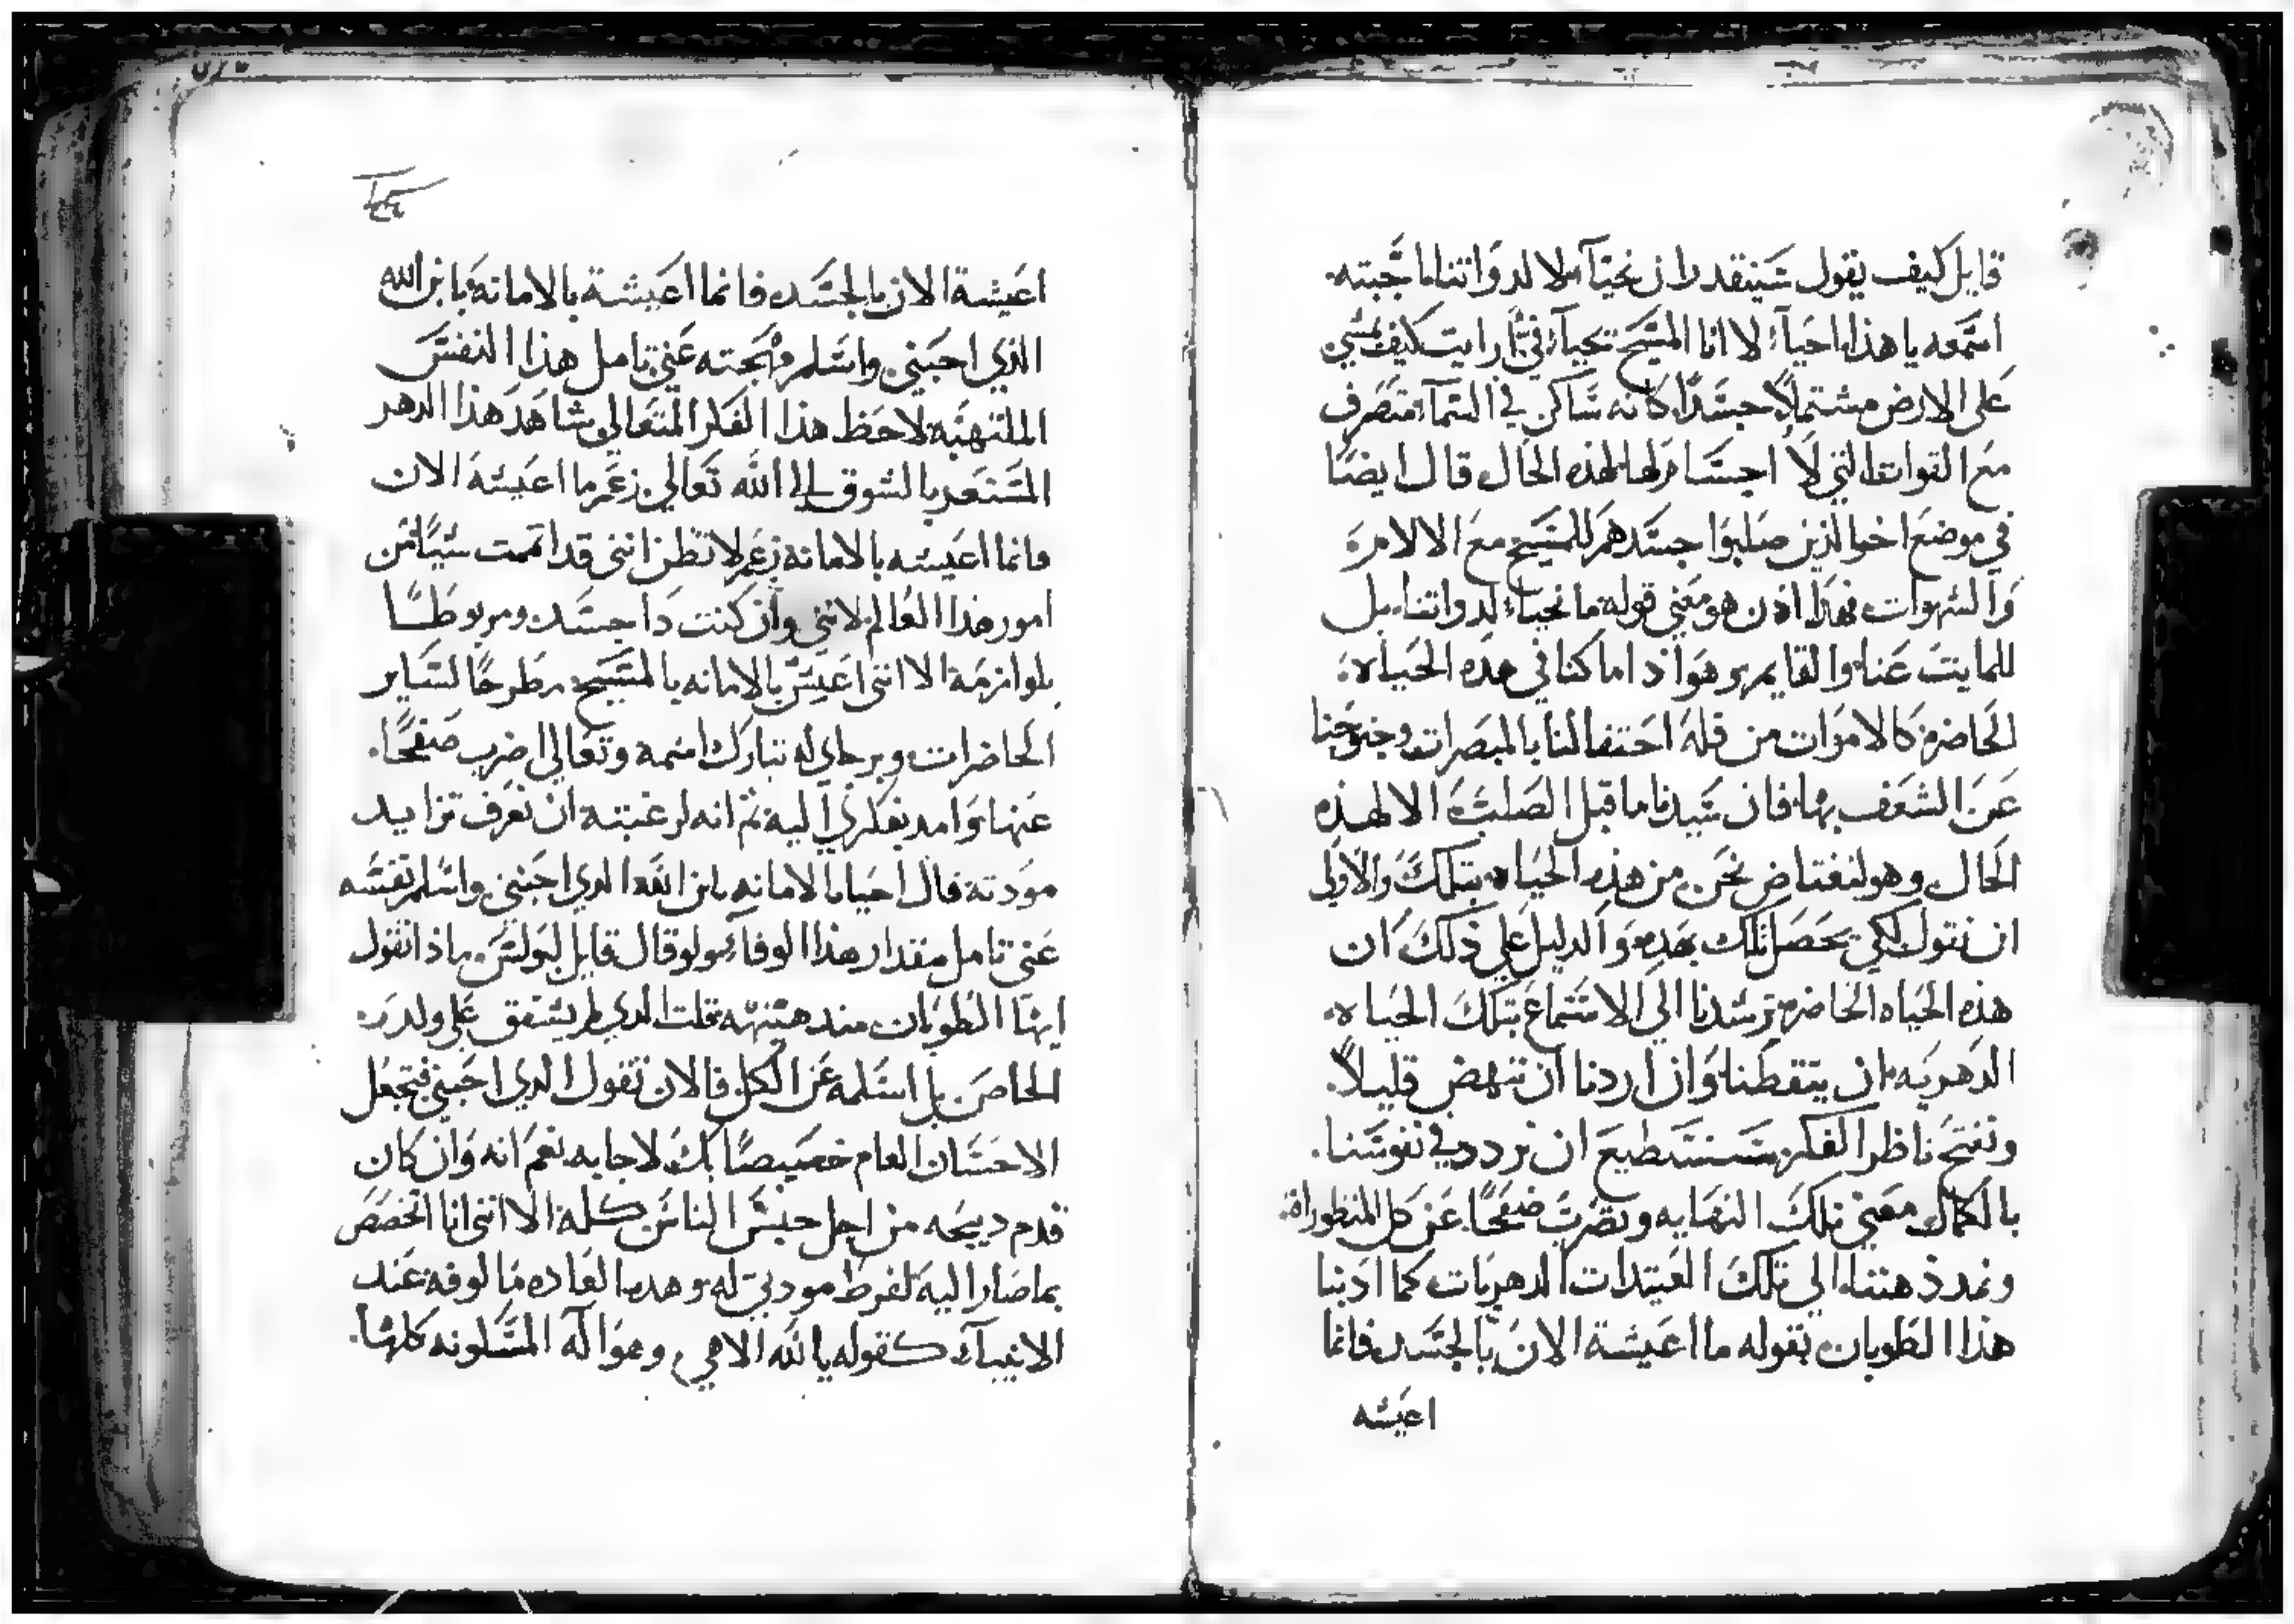 قايل كيف يقول سَنقدر ان نحيَا لا لدواتنا اجبته.
اسمعه يا هذا احياء لا انا المسيح يحياء في ارايت كيف يمشي
على الارض مشتملاً جسَدًا كانه ساكن في السماء متصرف
مع القوات التي لا اجسَام لها لهذه الحال قال ايضًا
في موضع اخر الذين صلبوا جسَدهم للمسيح مع الالام
والشهوات فهذا اذن هو معني قوله ما نحياء لدواتنا بل
للمايت عنا والقايم وهو اذ اما كنا في هذه الحياه
الحاضره كالاموات من قلة احتفالنا بالمبصرات وجنوحنا
عن الشعف بها فان سَيدنا ما قبل الصلبَ الا لهذه
الحال وهو لنعتاض نحن من هذه الحياه بتلك والاولي
ان نقول لكي نحصل تلك بهذه والدليل علي ذلك ان
هذه الحياه الحاضره ترشدنا الي الاستماع بتلك الحياه
الدهريه ان يتقطنا وان اردنا ان ننهض قليلاً.
ونفتح ناظر الفكر سَنستطيع ان نردد في نفوسَنا.
بالكمال معني تلك النهايه ونضرب صفحًا عن كل المنظوراه
ونمد ذهننا الي تلك العتيدات الدهريات كما ادبنا
هذا الطوبان بقوله ما اعيشة الان بالجسَد فانما
اعيشه
اعيشة الان بالجسَد فانما اعيشة بالامانه بابن الله
الذي احبني واسلم مهجته عني تامل هذا النفسَ
الملتهبَه لاحظ هذا الفكر المتعالي شاهد هذا الدهر
المسَتعر بالشوق الي الله تعالي زعم ما اعيشه الان
فانما اعيشه بالامانة زعم لا تظن انني قد اتممت شيًا من
امور هذا العالم لانني وان كنت دا جسَد ومربوطًا
بلوازمه الا انني اعيش بالامانه بالمسَيح مطرحًا لسَاير
الحاضرات وبرجاي له تبارك اسمه وتعالي اضرب صفحًا.
عنها وامد بفكري اليه ثم انه لرغبته ان نعرف تزايد
مودته قال احيا بالامانه بابن الله الدي احبني واسلم نفسَه
عني تامل مقدار هذا الوفاء ولو قال قايل لبولس ماذا تقول
ايها الطوبان مند هنيهه قلت الدي لم يشفق علي ولده
الخاص بل اسَلمه عن الكل فالان تقول الدي احبني فتجعل
الاحسَان العام خصيصًا بك لاجابه نعم انه وان كان
قدم دبيحه من اجل جنسَ الناسَ كله الا انني انا اتخصص
بما صار اليه لفرط مودتي له وهده العاده مالوفه عند
الانبياء كقوله يا الله الاهي وهو اله المسَكونه كلها.